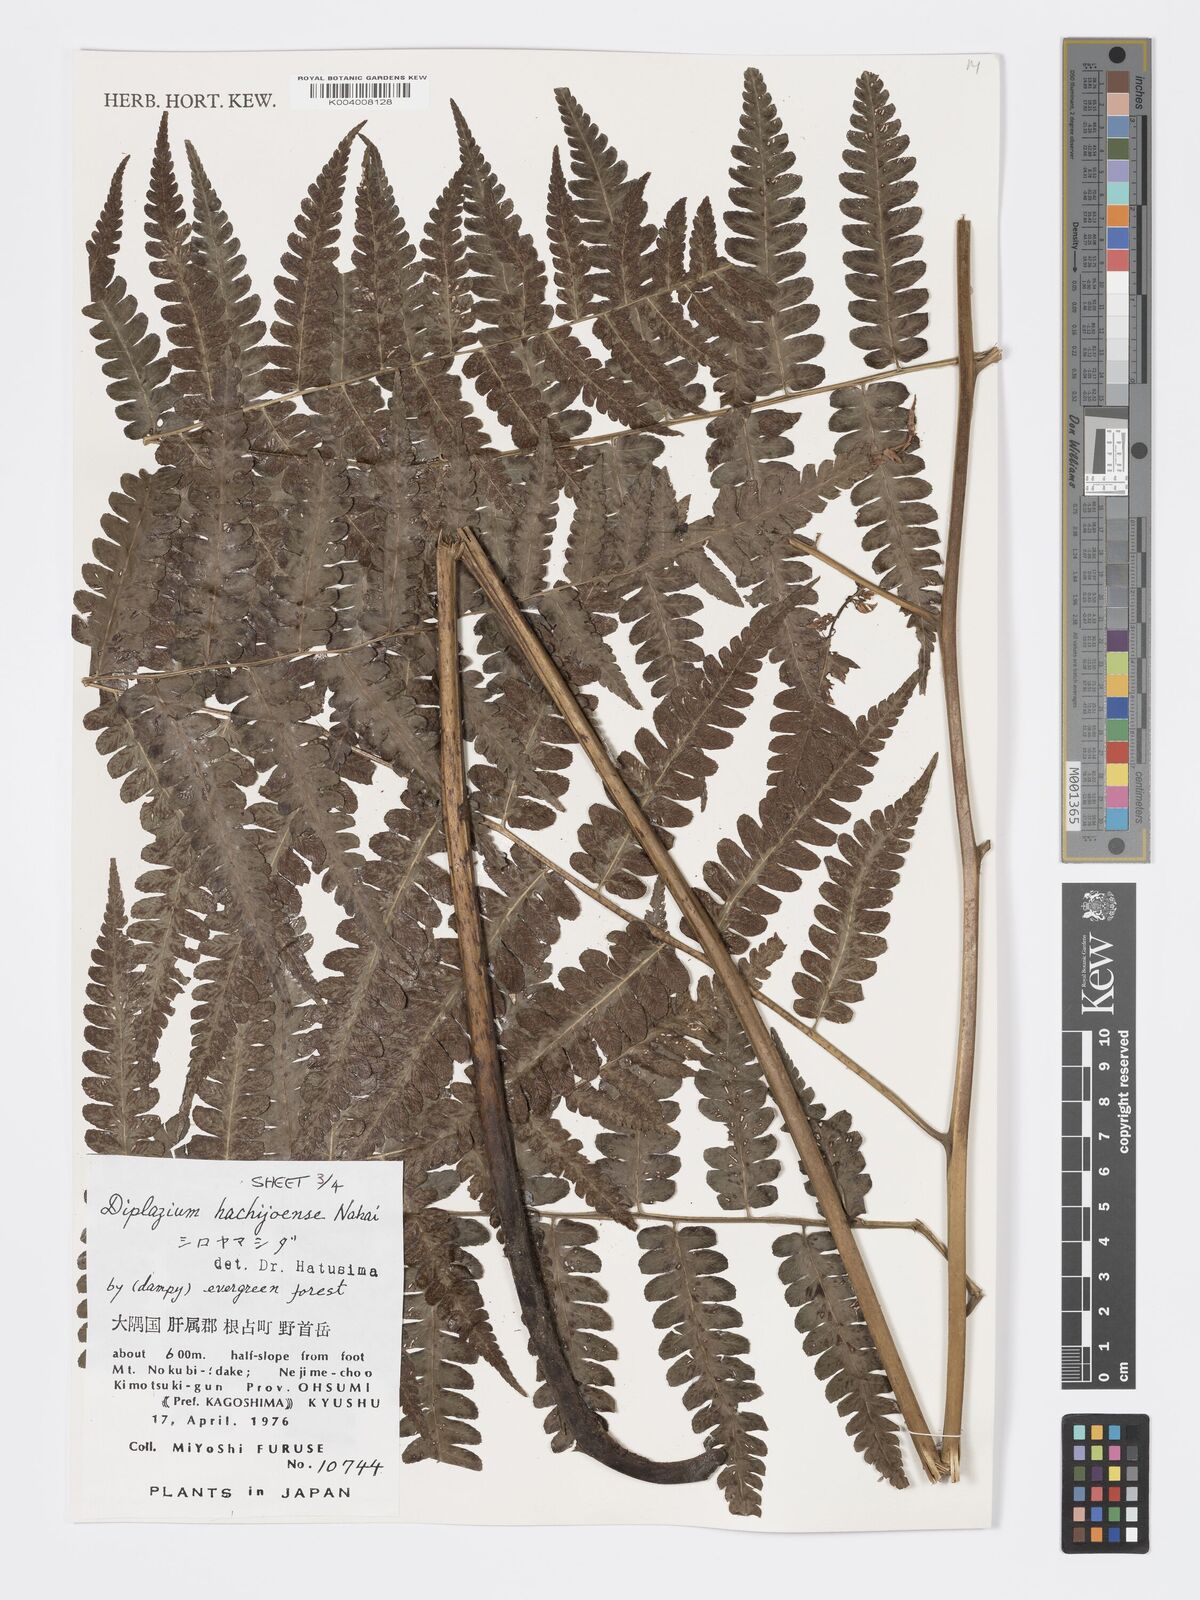 HERB. HORT. KEW.
ROYAL BOTANIC GARDENS KEW
K004008128
SHEET 3/4
Diplazium hachijoense Nakai
シロヤマシダ
det. Dr. Hatusima
by (dampy) evergreen forest
大隅国 肝属郡 根占町 野首岳
about 600m. half-slope from foot
Mt. Nokubi-dake; Nejime-choo
Kimotsuki-gun Prov. OHSUMI
《Pref. KAGOSHIMA》 KYUSHU
17, April. 1976
Coll. MiYoShi FURUSE
No. 10744
PLANTS in JAPAN
inches
Density
Don Williams
centimeters
M001365
Royal Botanic Gardens
Kew
0 1 2 3 4 5 6 7 8 9 10
cm
copyright reserved